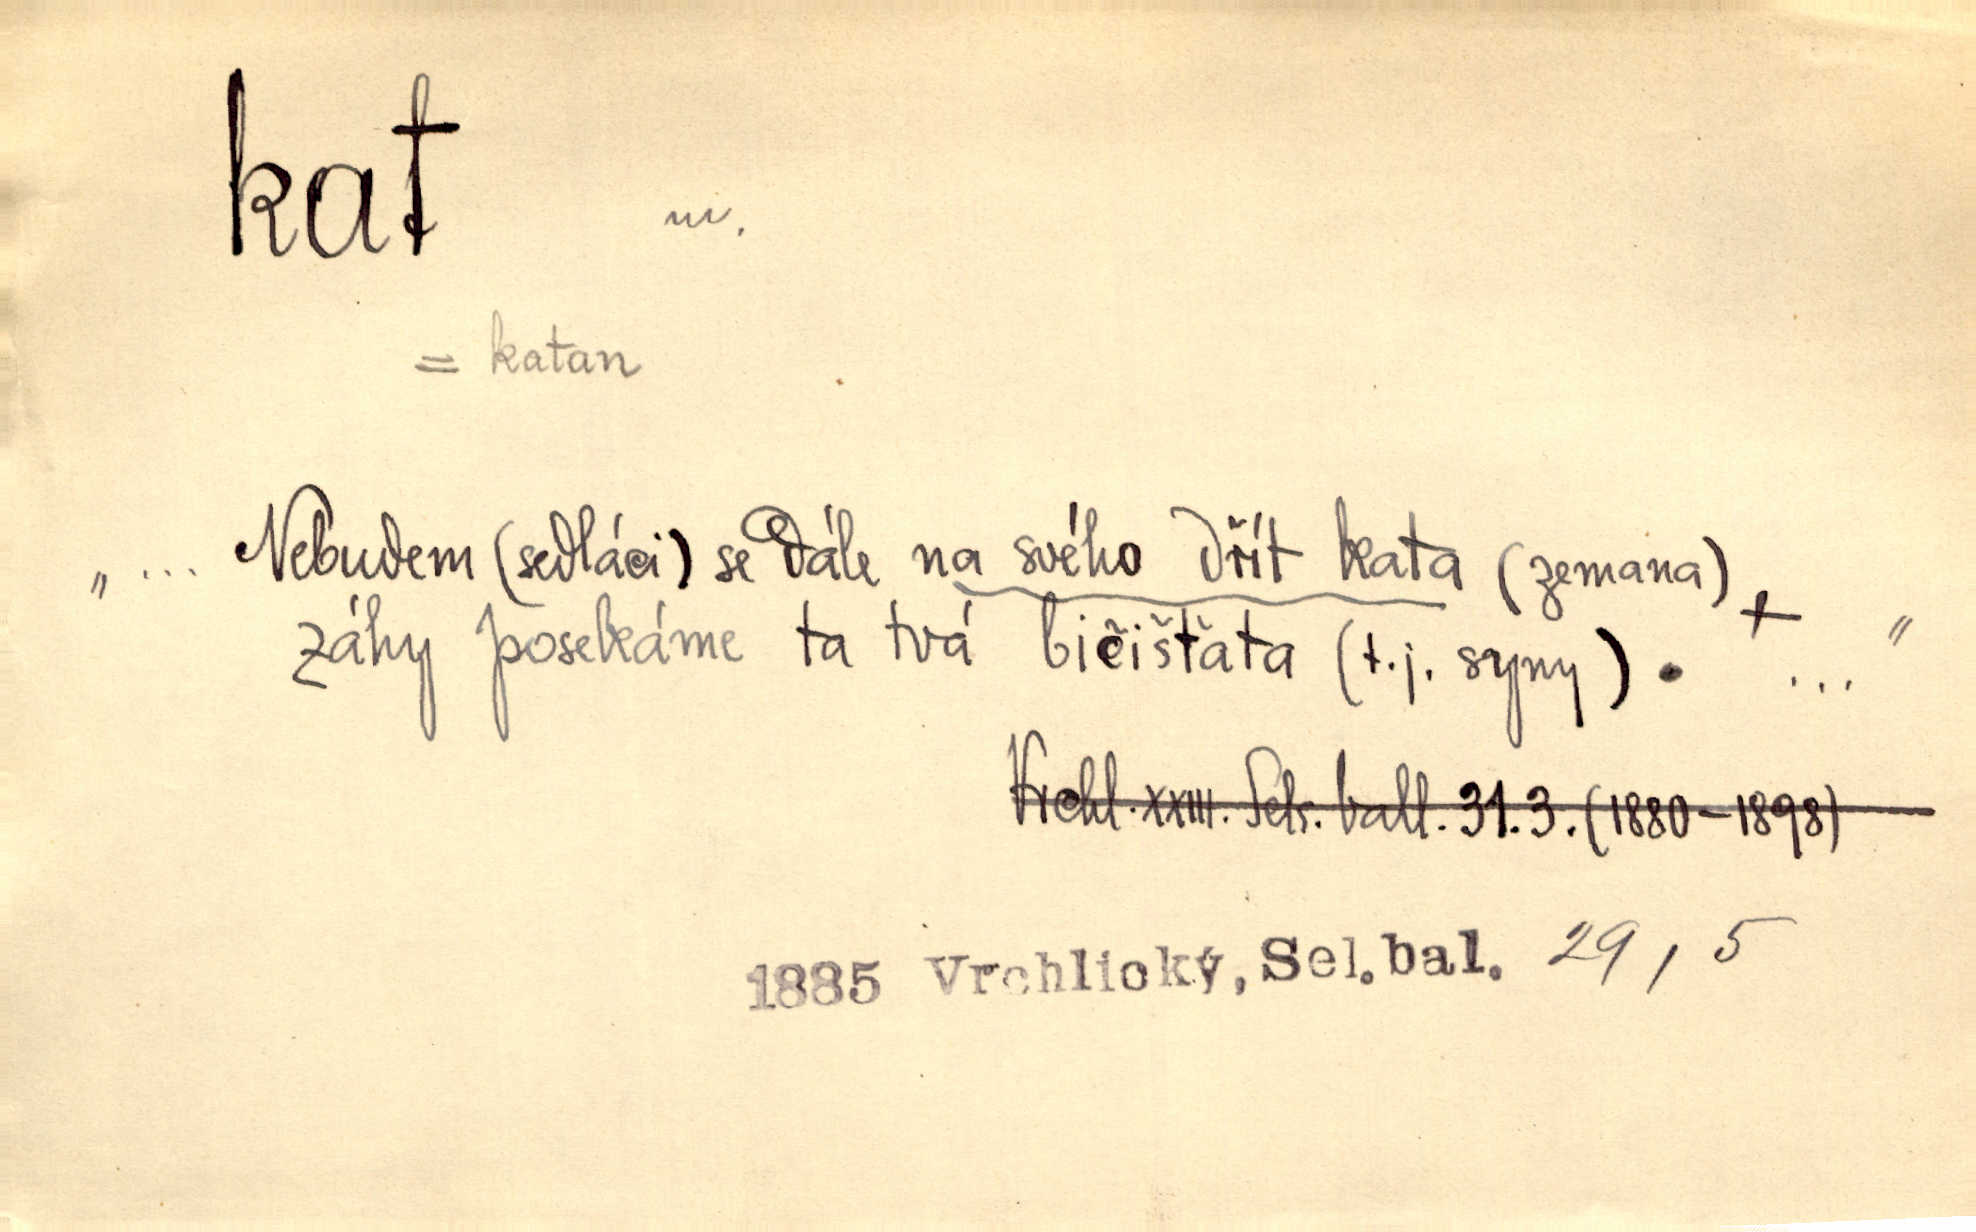 kat m.
= katan
„ ... Nebudem (sedláci) se dále na svého dřít kata (zemana) +
záhy posekáme ta tvá bičišťata (t.j. syny). ... "
Vrchl. XXIII. Sels. ball. 31.3. (1880-1898)
1885 Vrchlický, Sel. bal. 29, 5